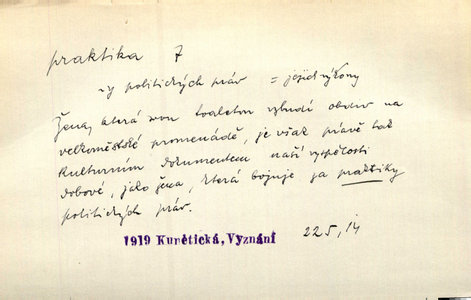 praktika 7
-y politických práv = jejich výkony
Žena, která svou toaletou vzbudí obdiv na
velkoměstské promenádě, je však právě tak
kulturním dokumentem naší vyspělosti
dobové, jako žena, která bojuje za praktiky
politických práv.
1919 Kunětická, Vyznání
225, 14